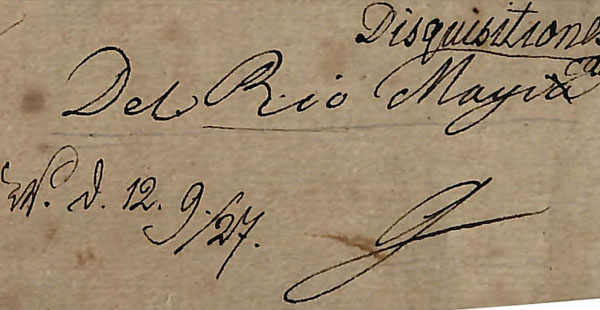 Disquisitiones
Del Rio Magica
W. d. 12. 9/27.
G